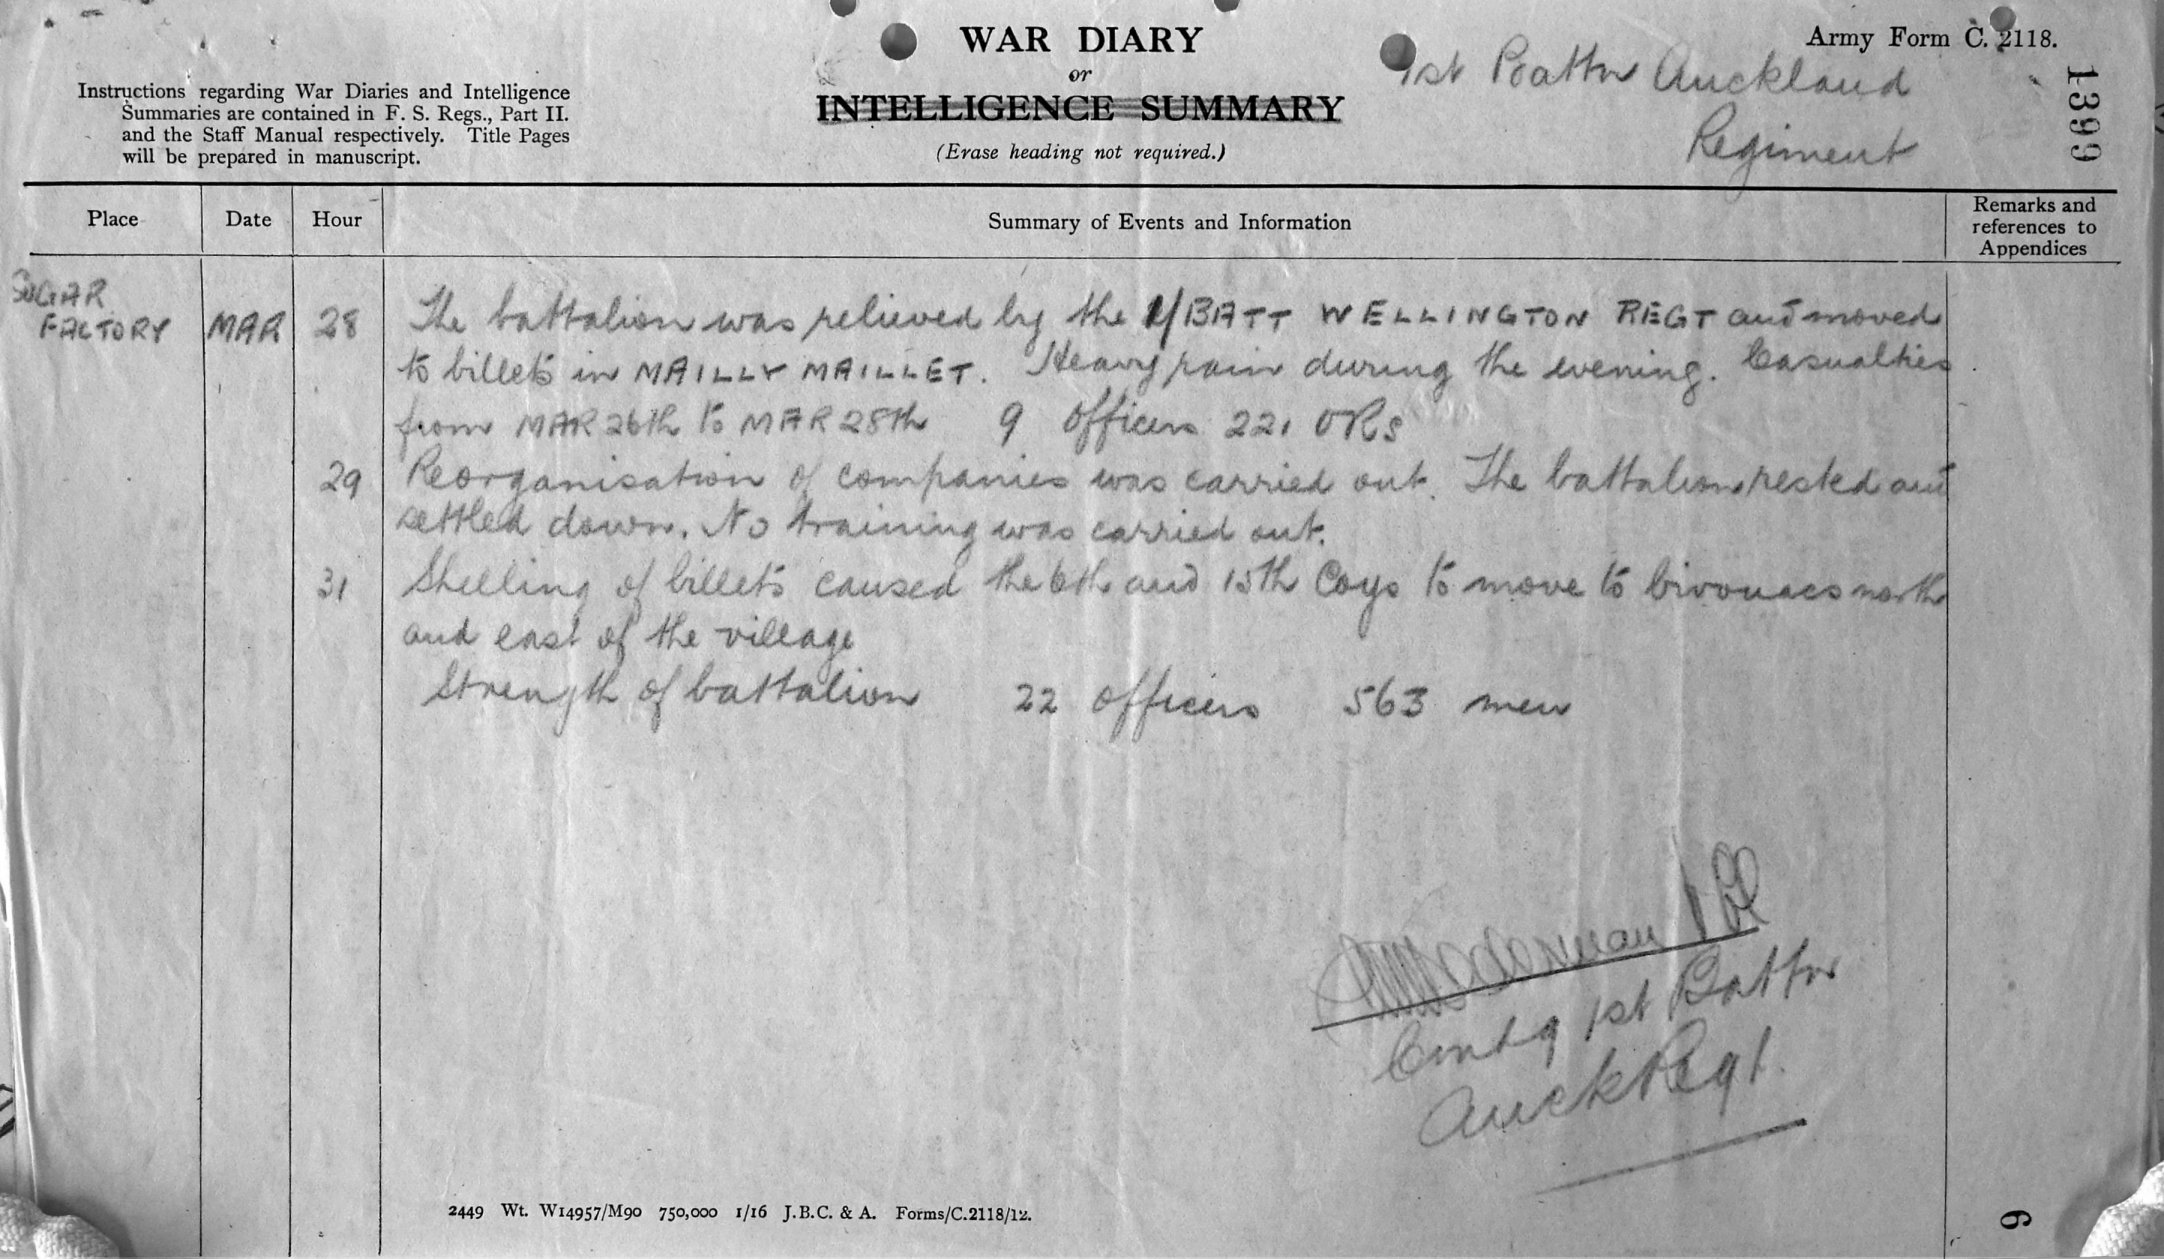 WAR DIARY
or
INTELLIGENCE SUMMARY
(Erase heading not required.)
Army Form C. 2118.
1st Battn Auckland
Regiment
1399
Instructions regarding War Diaries and Intelligence
Summaries are contained in F. S. Regs., Part II.
and the Staff Manual respectively. Title Pages
will be prepared in manuscript.
Place Date Hour Summary of Events and Information Remarks and
references to
Appendices
SUGAR
FACTORY MAR 28 The battalion was relieved by the 1/BATT WELLINGTON REGT and moved
to billets in MAILLY MAILLET. Heavy rain during the evening. Casualties
from MAR 26th to MAR 28th 9 Officers 221 ORs
29 Reorganisation of companies was carried out. The battalion rested and
settled down. No training was carried out.
31 Shelling of billets caused the 6th and 15th Coys to move to bivouacs north
and east of the village
Strength of battalion 22 Officers 563 men
Cmdg 1st Battn
Auck Regt.
2449 Wt. W14957/M90 750,000 1/16 J.B.C. & A. Forms/C.2118/12.
6